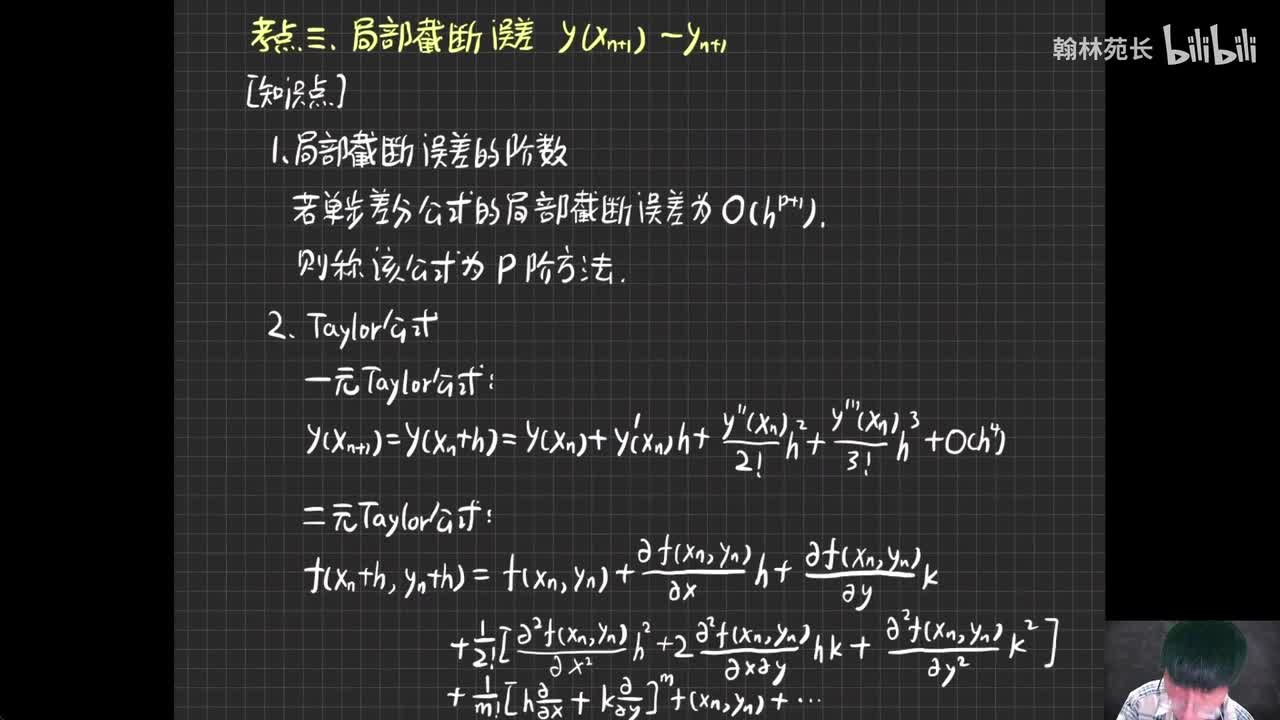 考点三、局部截断误差 y(xₙ₊₁) - yₙ₊₁
翰林苑长 bilibili
[知识点]
1、局部截断误差的阶数
若单步差分公式的局部截断误差为 O(hᵖ⁺¹).
则称该公式为 P 阶方法.
2、Taylor公式
一元Taylor公式:
y(xₙ₊₁) = y(xₙ+h) = y(xₙ) + y'(xₙ)h + y''(xₙ)/2! h² + y'''(xₙ)/3! h³ + O(h⁴)
二元Taylor公式:
f(xₙ+h, yₙ+h) = f(xₙ, yₙ) + ∂f(xₙ, yₙ)/∂x h + ∂f(xₙ, yₙ)/∂y k
+ 1/2! [∂²f(xₙ, yₙ)/∂x² h² + 2 ∂²f(xₙ, yₙ)/∂x∂y hk + ∂²f(xₙ, yₙ)/∂y² k²]
+ 1/m! [h ∂/∂x + k ∂/∂y]ᵐ f(xₙ, yₙ) + ⋯